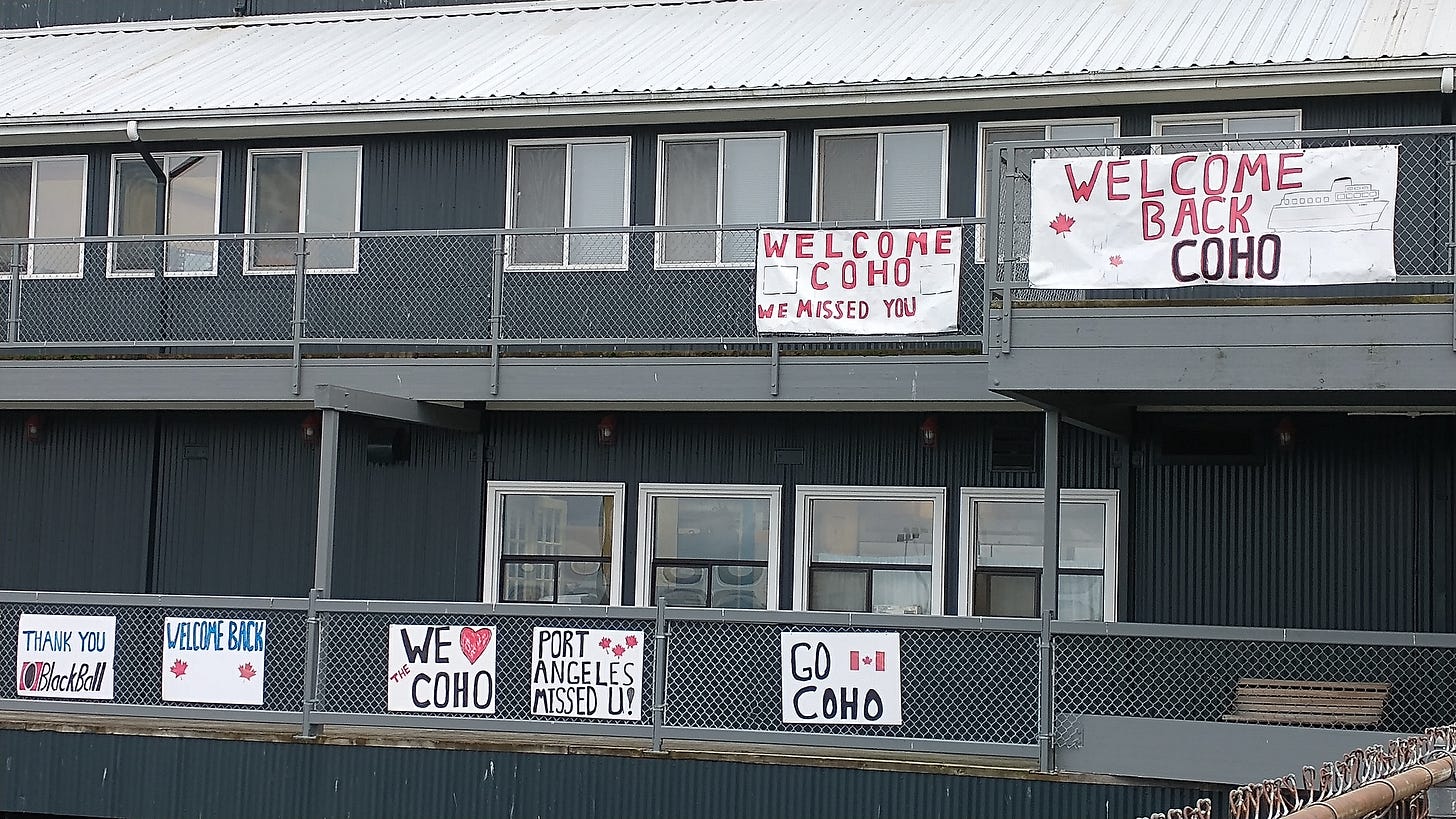 WELCOME
BACK
COHO
WELCOME
COHO
WE MISSED YOU
THANK YOU
BlackBall
WELCOME BACK
WE
THE
COHO
PORT
ANGELES
MISSED U!
GO
COHO